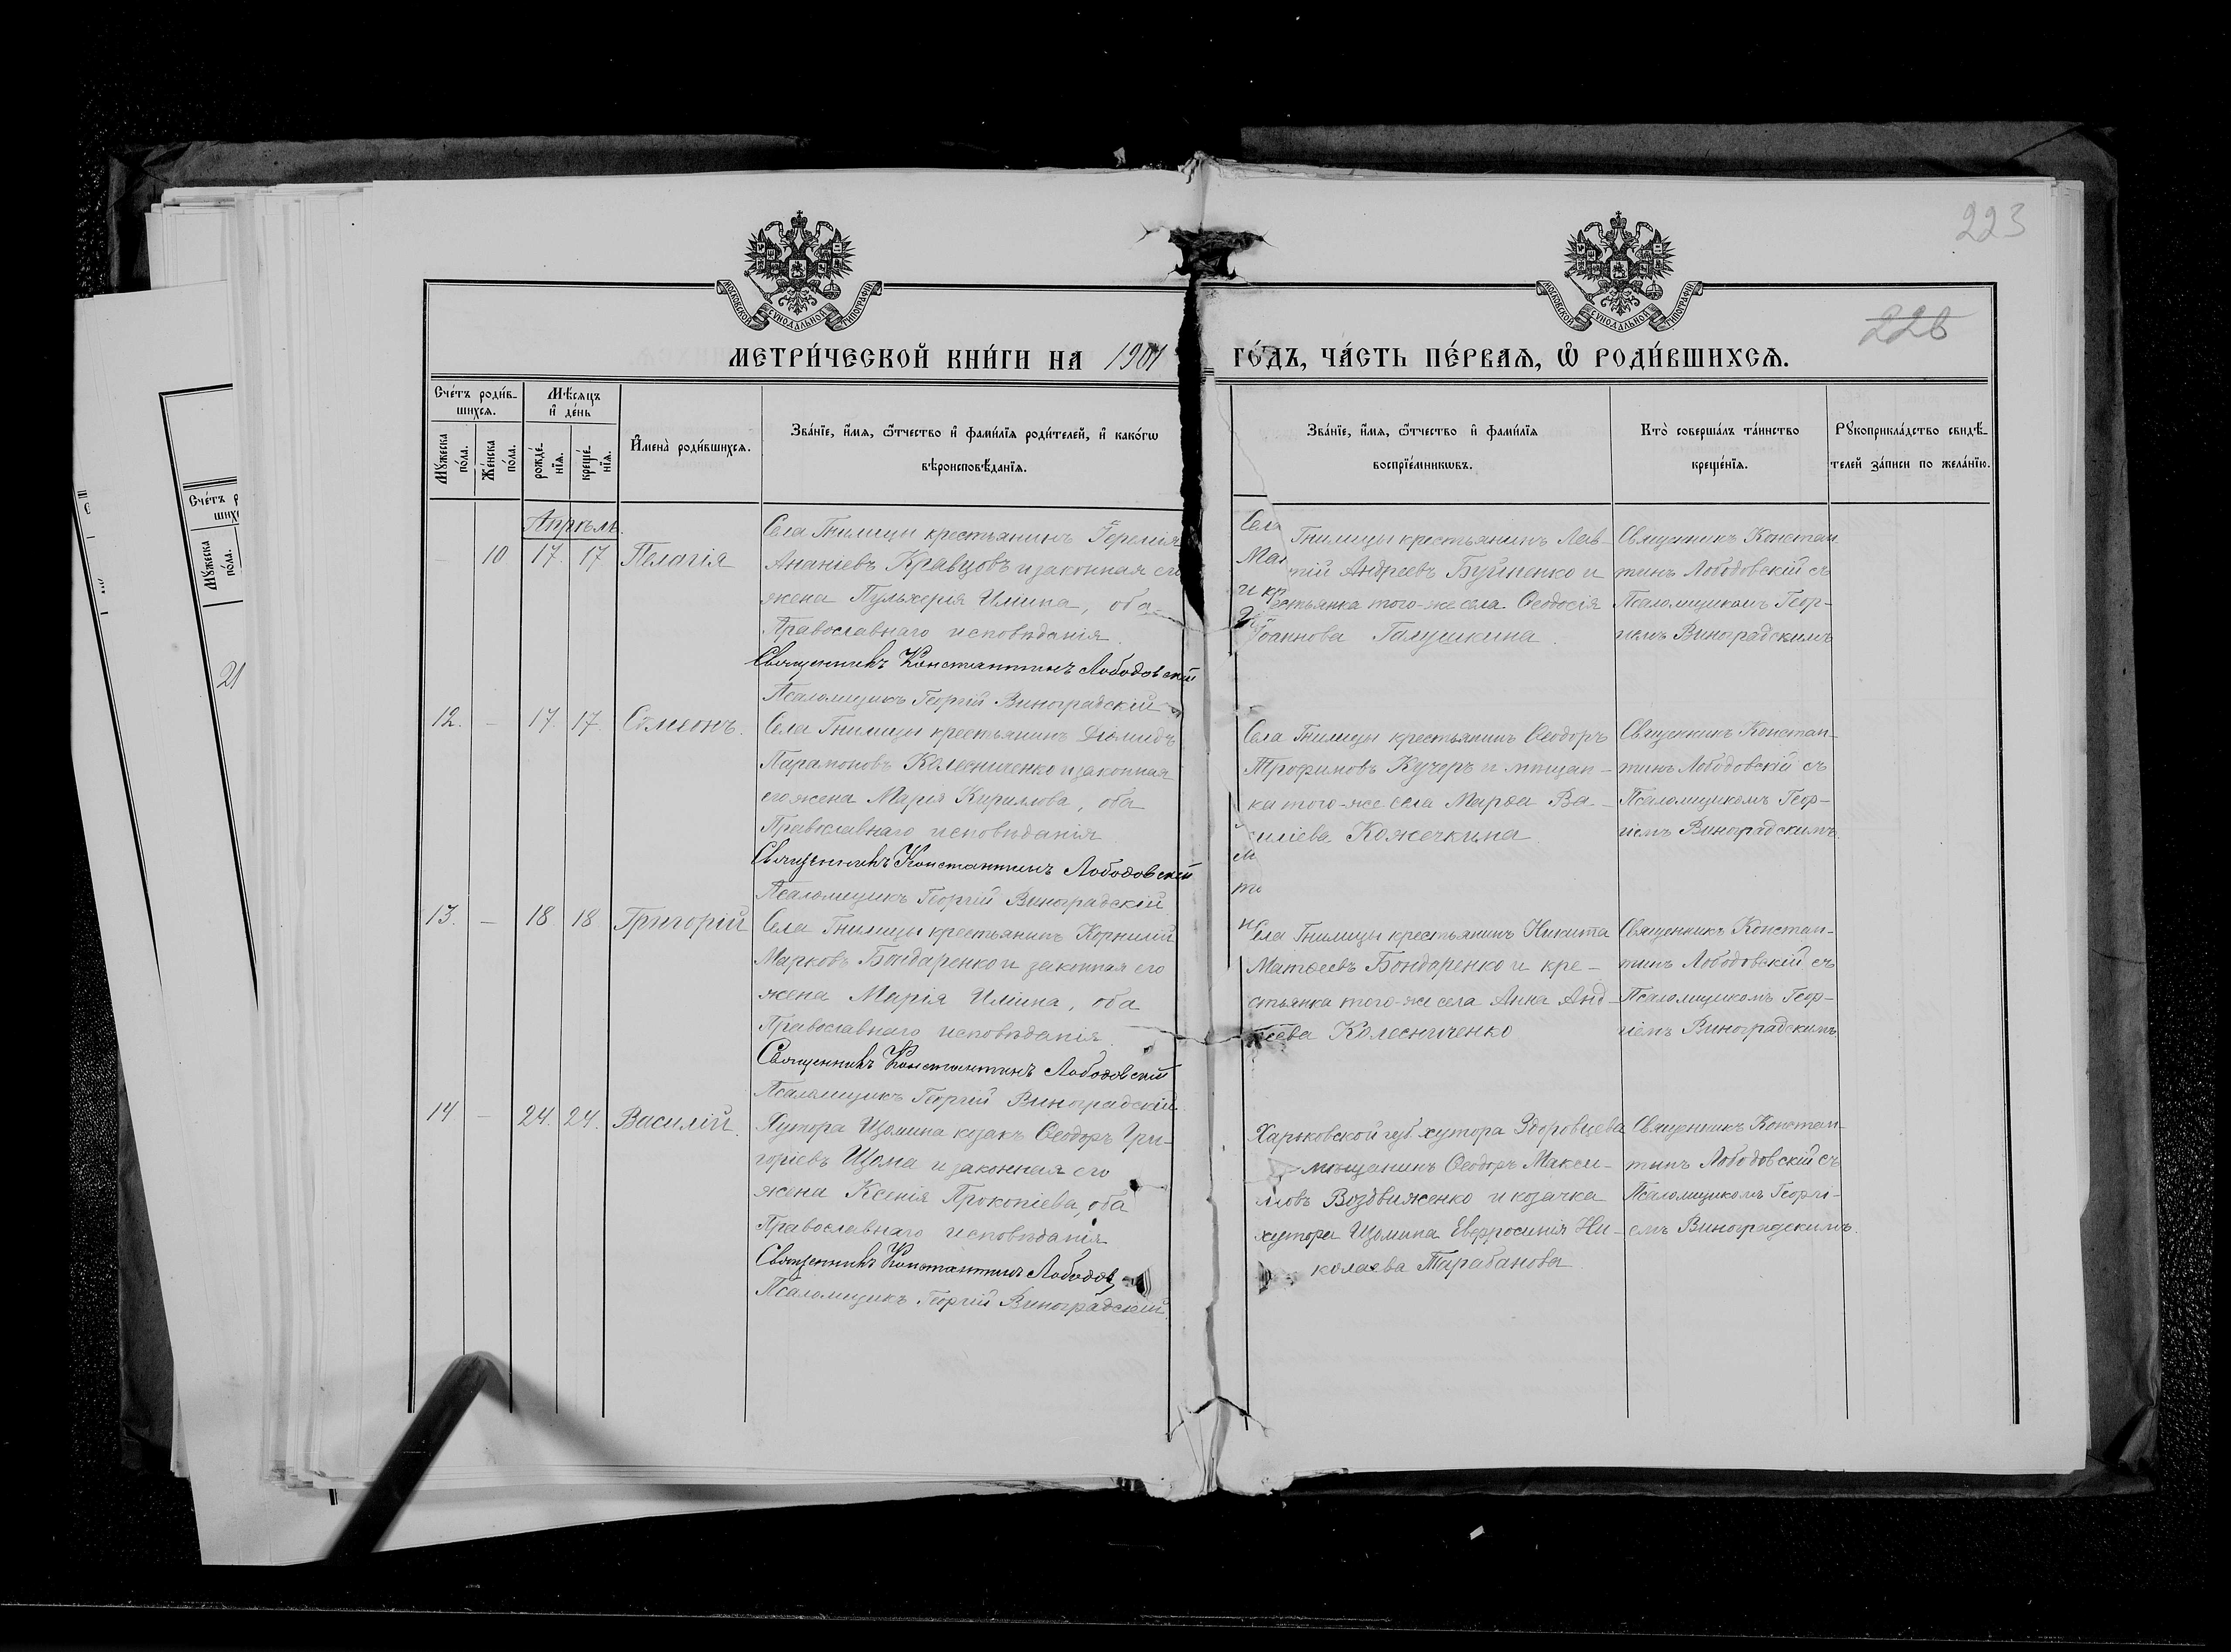 223
226
МОСКОВСКОЙ СѴНОДАЛЬНОЙ ТИПОГРАФІИ
МОСКОВСКОЙ СѴНОДАЛЬНОЙ ТИПОГРАФІИ
МЕТРИ́ЧЕСКОЙ КНИ́ГИ НА 1901 ГО́ДЪ, ЧА́СТЬ ПЕ́РВАѦ, Ѡ҆ РОДИ́ВШИХСѦ.
Сче́тъ роди́в-
шихсѧ.
Мѣ́сѧцъ
и҆ де́нь
Мꙋ́жеска по́ла.
Же́нска по́ла.
рожде́-
нїѧ.
креще́-
нїѧ.
И҆мена̀ роди́вшихсѧ.
Зва́нїе, и҆́мѧ, ѻ҆́тчество и҆ фами́лїѧ роди́телей, и҆ како́гѡ
вѣроисповѣ́данїѧ.
Зва́нїе, и҆́мѧ, ѻ҆́тчество и҆ фами́лїѧ
воспрїе́мникѡвъ.
Кто̀ соверша́лъ та́инство
креще́нїѧ.
Рꙋкоприкла́дство свидѣ́-
телей за́писи по жела́нїю.
Апрѣль.
10 17. 17 Пелагія
Села Гнилицы крестьянинъ Іеремія
Ананіевъ Кравцовъ и законная его
жена Пульхерія Иліина, оба
Православнаго исповѣданія.
Священникъ Константинъ Лободовскій
Псаломщикъ Георгій Виноградскій
Села Гнилицы крестьянинъ
Андреевъ Буйненко и
крестьянка того-же села Ѳеодосія
Іоаннова Галушкина.
Священникъ Констан-
тинъ Лободовскій съ
Псаломщикомъ Геор-
гіемъ Виноградскимъ
12. - 17. 17. Сѷмеонъ.
Села Гнилицы крестьянинъ Діомидъ
Парамоновъ Колесниченко и законная
его жена Марія Кириллова, оба
Православнаго исповѣданія
Священникъ Константинъ Лободовскій
Псаломщикъ Георгій Виноградскій
Села Гнилицы крестьянинъ Ѳеодоръ
Трофимовъ Кучеръ и мѣщан-
ка того-же села Марѳа Ва-
силіева Кожечкина.
Священникъ Констан-
тинъ Лободовскій съ
Псаломщикомъ Геор-
гіемъ Виноградскимъ.
13. - 18 18 Григорій
Села Гнилицы крестьянинъ Корнилій
Марковъ Бондаренко и законная его
жена Марія Иліина, оба
Православнаго исповѣданія.
Священникъ Константинъ Лободовскій
Псаломщикъ Георгій Виноградскій.
Села Гнилицы крестьянинъ Никита
Матѳеевъ Бондаренко и кре-
стьянка того-же села Анна Анд-
реева Колесниченко
Священникъ Констан-
тинъ Лободовскій съ
Псаломщикомъ Геор-
гіемъ Виноградскимъ.
14 - 24. 24. Василій.
Хутора Щомина козакъ Ѳеодоръ Гри-
горіевъ Щома и законная его
жена Ксенія Прокопіева, оба
Православнаго исповѣданія
Священникъ Константинъ Лободов
Псаломщикъ Георгій Виноградскій.
Харьковской губ. хутора Здоровцева
мѣщанинъ Ѳеодоръ Макси-
мовъ Воздвиженко и козачка
хутора Щомина Евфросинія Ни-
колаева Тарабанова
Священникъ Констан-
тинъ Лободовскій съ
Псаломщикомъ Георгі-
емъ Виноградскимъ.